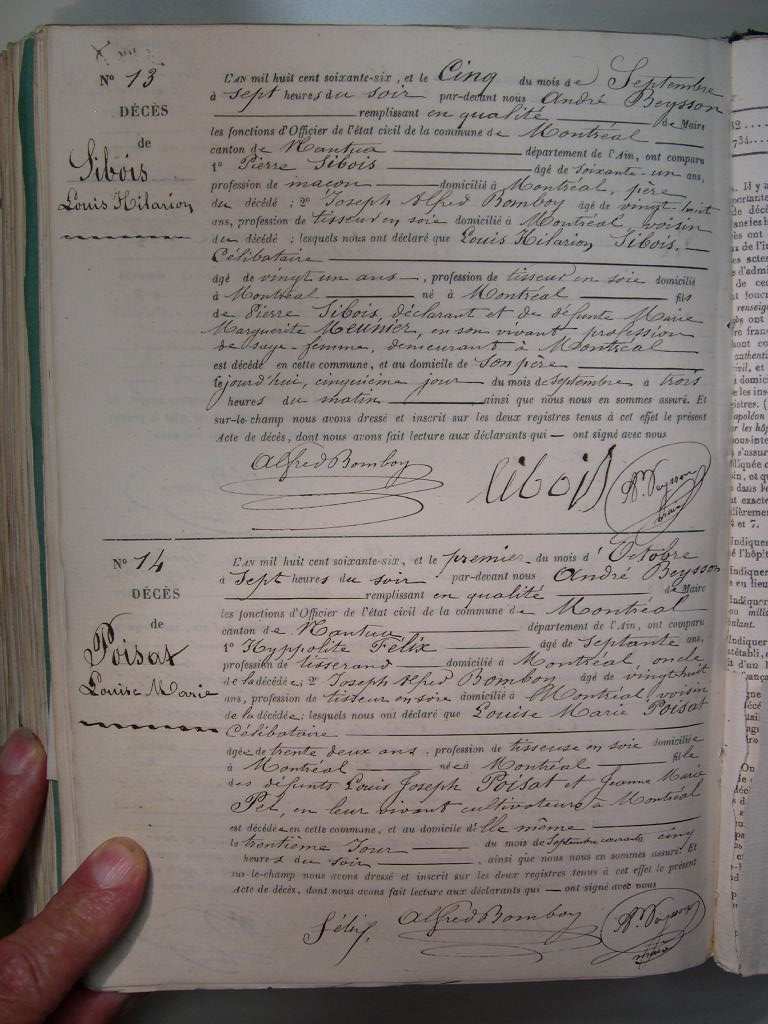 N° 13
DÉCÈS
de
Sibois
Louis Hilarion
L'AN mil huit cent soixante-six, et le Cinq du mois de Septembre
à sept heures du soir par-devant nous André Beysson
remplissant en qualité de Maire
les fonctions d'Officier de l'état civil de la commune de Montréal
canton de Nantua département de l'Ain, ont comparu
1° Pierre Sibois âgé de soixante-un ans,
profession de maçon domicilié à Montréal, père
du décédé ; 2° Joseph Alfred Bomboy âgé de vingt-huit
ans, profession de tisseur en soie domicilié à Montréal, voisin
du décédé ; lesquels nous ont déclaré que Louis Hilarion Sibois,
Célibataire
âgé de vingt un ans, profession de tisseur en soie domicilié
à Montréal né à Montréal fils
de Pierre Sibois, déclarant et de défunte Marie
Marguerite Meunier, en son vivant profession
de sage-femme, demeurant à Montréal
est décédé en cette commune, et au domicile de son père
le jourd'hui, cinquième jour du mois de septembre à trois
heures du matin ainsi que nous nous en sommes assuré. Et
sur-le-champ nous avons dressé et inscrit sur les deux registres tenus à cet effet le présent
Acte de décès, dont nous avons fait lecture aux déclarants qui — ont signé avec nous
Alfred Bomboy
Sibois
Ad. Beysson
maire
N° 14
DÉCÈS
de
Poisat
Louise Marie
L'AN mil huit cent soixante-six, et le premier du mois d'Octobre
à Sept heures du soir par-devant nous André Beysson
remplissant en qualité de Maire
les fonctions d'Officier de l'état civil de la commune de Montréal
canton de Nantua département de l'Ain, ont comparu
1° Hyppolite Félix âgé de Septante ans,
profession de tisserand domicilié à Montréal, oncle
de la décédée ; 2° Joseph Alfred Bomboy âgé de vingt huit
ans, profession de tisseur en soie domicilié à Montréal voisin
de la décédée ; lesquels nous ont déclaré que Louise Marie Poisat
Célibataire
âgée de trente deux ans, profession de tisseuse en soie domiciliée
à Montréal née à Montréal fille
des défunts Louis Joseph Poisat et Jeanne Marie
Pey, en leur vivant cultivateurs à Montréal
est décédée en cette commune, et au domicile d'elle même
le trentième Jour du mois de Septembre courante cinq
heures du soir, ainsi que nous nous en sommes assuré. Et
sur-le-champ nous avons dressé et inscrit sur les deux registres tenus à cet effet le présent
Acte de décès, dont nous avons fait lecture aux déclarants qui — ont signé avec nous
Félix
Alfred Bomboy
Ad. Beysson
maire